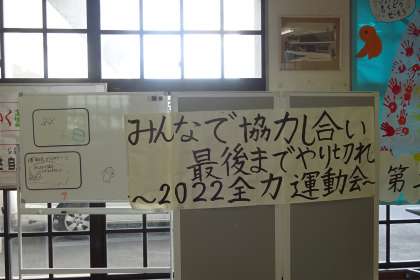 みんなで協力し合い
最後までやり切れ
～2022全力運動会～
第